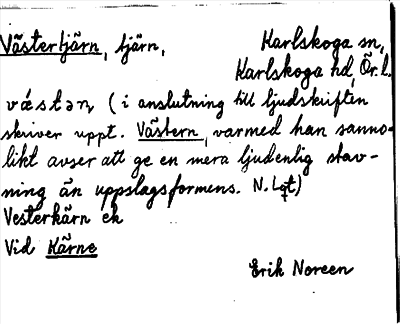 Västertjärn, tjärn, Karlskoga sn,
Karlskoga hd, Ör. l.
västən, (i anslutning till ljudskriften
skriver uppt. Västern, varmed han sanno-
likt avser att ge en mera ljudenlig stav-
ning än uppslagsformens. N. Lqt)
Vesterkärn ek
Vid Kärne
Erik Noreen